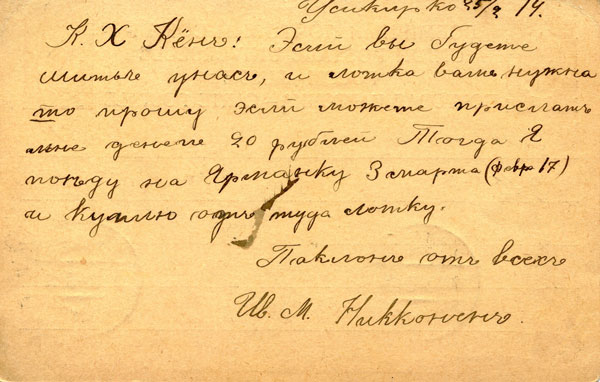 Усикирко 25/2 14.
К. Х Кёнъ! Эсли вы будете
шитьъ унасъ, и лотка вамъ нужна
то прошу эсли можете прислать
мне денегъ 20 рублей Тогда Я
поѣду на Ярманку 3 марта (февр 17)
и куплю отъ туда лотку.
Паклонъ отъ всехъ
Ив. М. Никконенъ.